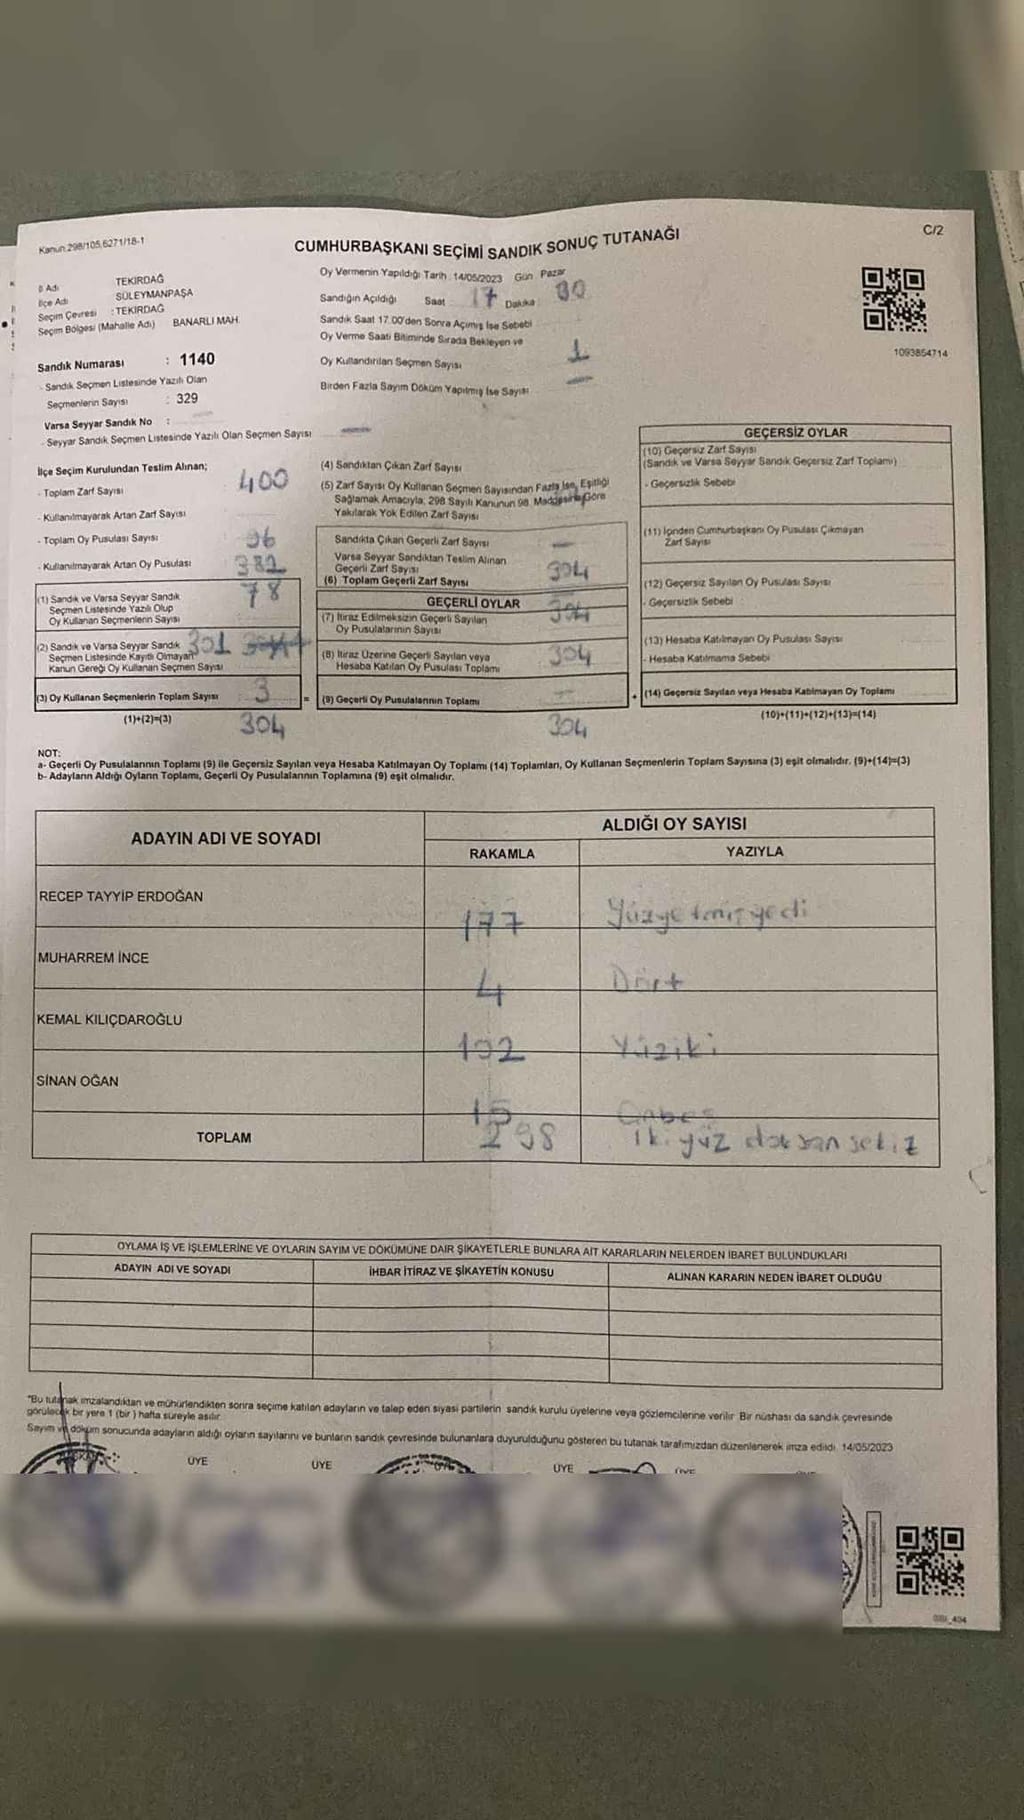 Kanun:298/105,6271/18-1
CUMHURBAŞKANI SEÇİMİ SANDIK SONUÇ TUTANAĞI
C/2
İl Adı TEKİRDAĞ
İlçe Adı SÜLEYMANPAŞA
Seçim Çevresi : TEKİRDAĞ
Seçim Bölgesi (Mahalle Adı) BANARLI MAH.
Sandık Numarası : 1140
- Sandık Seçmen Listesinde Yazılı Olan
Seçmenlerin Sayısı : 329
Varsa Seyyar Sandık No :
- Seyyar Sandık Seçmen Listesinde Yazılı Olan Seçmen Sayısı
Oy Vermenin Yapıldığı Tarih : 14/05/2023 Gün Pazar
Sandığın Açıldığı Saat 17 Dakika 00
Sandık Saat 17.00'den Sonra Açımış İse Sebebi
Oy Verme Saati Bitiminde Sırada Bekleyen ve
Oy Kullandırılan Seçmen Sayısı 1
Birden Fazla Sayım Döküm Yapılmış İse Sayısı
1093854714
İlçe Seçim Kurulundan Teslim Alınan;
- Toplam Zarf Sayısı 400
- Kullanılmayarak Artan Zarf Sayısı
- Toplam Oy Pusulası Sayısı 96
- Kullanılmayarak Artan Oy Pusulası 382
78
(1) Sandık ve Varsa Seyyar Sandık
Seçmen Listesinde Yazılı Olup
Oy Kullanan Seçmenlerin Sayısı
(2) Sandık ve Varsa Seyyar Sandık 301
Seçmen Listesinde Kayıtlı Olmayan
Kanun Gereği Oy Kullanan Seçmen Sayısı
(3) Oy Kullanan Seçmenlerin Toplam Sayısı 3 =
(1)+(2)=(3) 304
(4) Sandıktan Çıkan Zarf Sayısı
(5) Zarf Sayısı Oy Kullanan Seçmen Sayısından Fazla İse, Eşitliği
Sağlamak Amacıyla, 298 Sayılı Kanunun 98. Maddesine Göre
Yakılarak Yok Edilen Zarf Sayısı
Sandıkta Çıkan Geçerli Zarf Sayısı
Varsa Seyyar Sandıktan Teslim Alınan
Geçerli Zarf Sayısı 304
(6) Toplam Geçerli Zarf Sayısı
GEÇERLİ OYLAR
(7) İtiraz Edilmeksizin Geçerli Sayılan 304
Oy Pusulalarının Sayısı
(8) İtiraz Üzerine Geçerli Sayılan veya 304
Hesaba Katılan Oy Pusulası Toplamı
(9) Geçerli Oy Pusulalarının Toplamı +
304
GEÇERSİZ OYLAR
(10) Geçersiz Zarf Sayısı
(Sandık ve Varsa Seyyar Sandık Geçersiz Zarf Toplamı)
- Geçersizlik Sebebi
(11) İçinden Cumhurbaşkanı Oy Pusulası Çıkmayan
Zarf Sayısı
(12) Geçersiz Sayılan Oy Pusulası Sayısı
- Geçersizlik Sebebi
(13) Hesaba Katılmayan Oy Pusulası Sayısı
- Hesaba Katılmama Sebebi
(14) Geçersiz Sayılan veya Hesaba Katılmayan Oy Toplamı
(10)+(11)+(12)+(13)=(14)
NOT:
a- Geçerli Oy Pusulalarının Toplamı (9) ile Geçersiz Sayılan veya Hesaba Katılmayan Oy Toplamı (14) Toplamları, Oy Kullanan Seçmenlerin Toplam Sayısına (3) eşit olmalıdır. (9)+(14)=(3)
b- Adayların Aldığı Oyların Toplamı, Geçerli Oy Pusulalarının Toplamına (9) eşit olmalıdır.
ADAYIN ADI VE SOYADI
ALDIĞI OY SAYISI
RAKAMLA YAZIYLA
RECEP TAYYİP ERDOĞAN 177 Yüzyetmişyedi
MUHARREM İNCE 4 Dört
KEMAL KILIÇDAROĞLU 102 Yüziki
SİNAN OĞAN 15 Onbeş
TOPLAM 298 ikiyüz doksan sekiz
OYLAMA İŞ VE İŞLEMLERİNE VE OYLARIN SAYIM VE DÖKÜMÜNE DAİR ŞİKAYETLERLE BUNLARA AİT KARARLARIN NELERDEN İBARET BULUNDUKLARI
ADAYIN ADI VE SOYADI İHBAR İTİRAZ VE ŞİKAYETİN KONUSU ALINAN KARARIN NEDEN İBARET OLDUĞU
*Bu tutanak imzalandıktan ve mühürlendikten sonra seçime katılan adayların ve talep eden siyasi partilerin sandık kurulu üyelerine veya gözlemcilerine verilir. Bir nüshası da sandık çevresinde
görülecek bir yere 1 (bir) hafta süreyle asılır.
Sayım ve döküm sonucunda adayların aldığı oyların sayılarını ve bunların sandık çevresinde bulunanlara duyurulduğunu gösteren bu tutanak tarafımızdan düzenlenerek imza edildi. 14/05/2023
ÜYE ÜYE ÜYE ÜYE